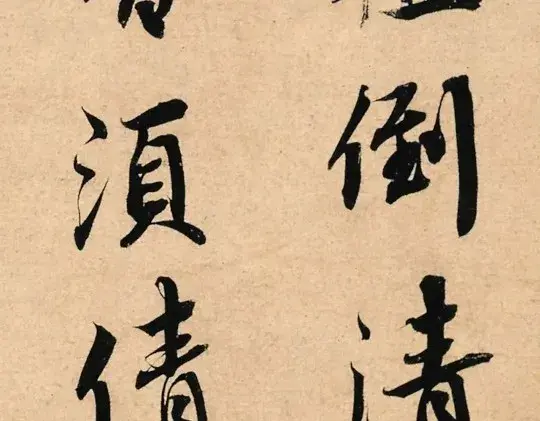 倒清
須倩